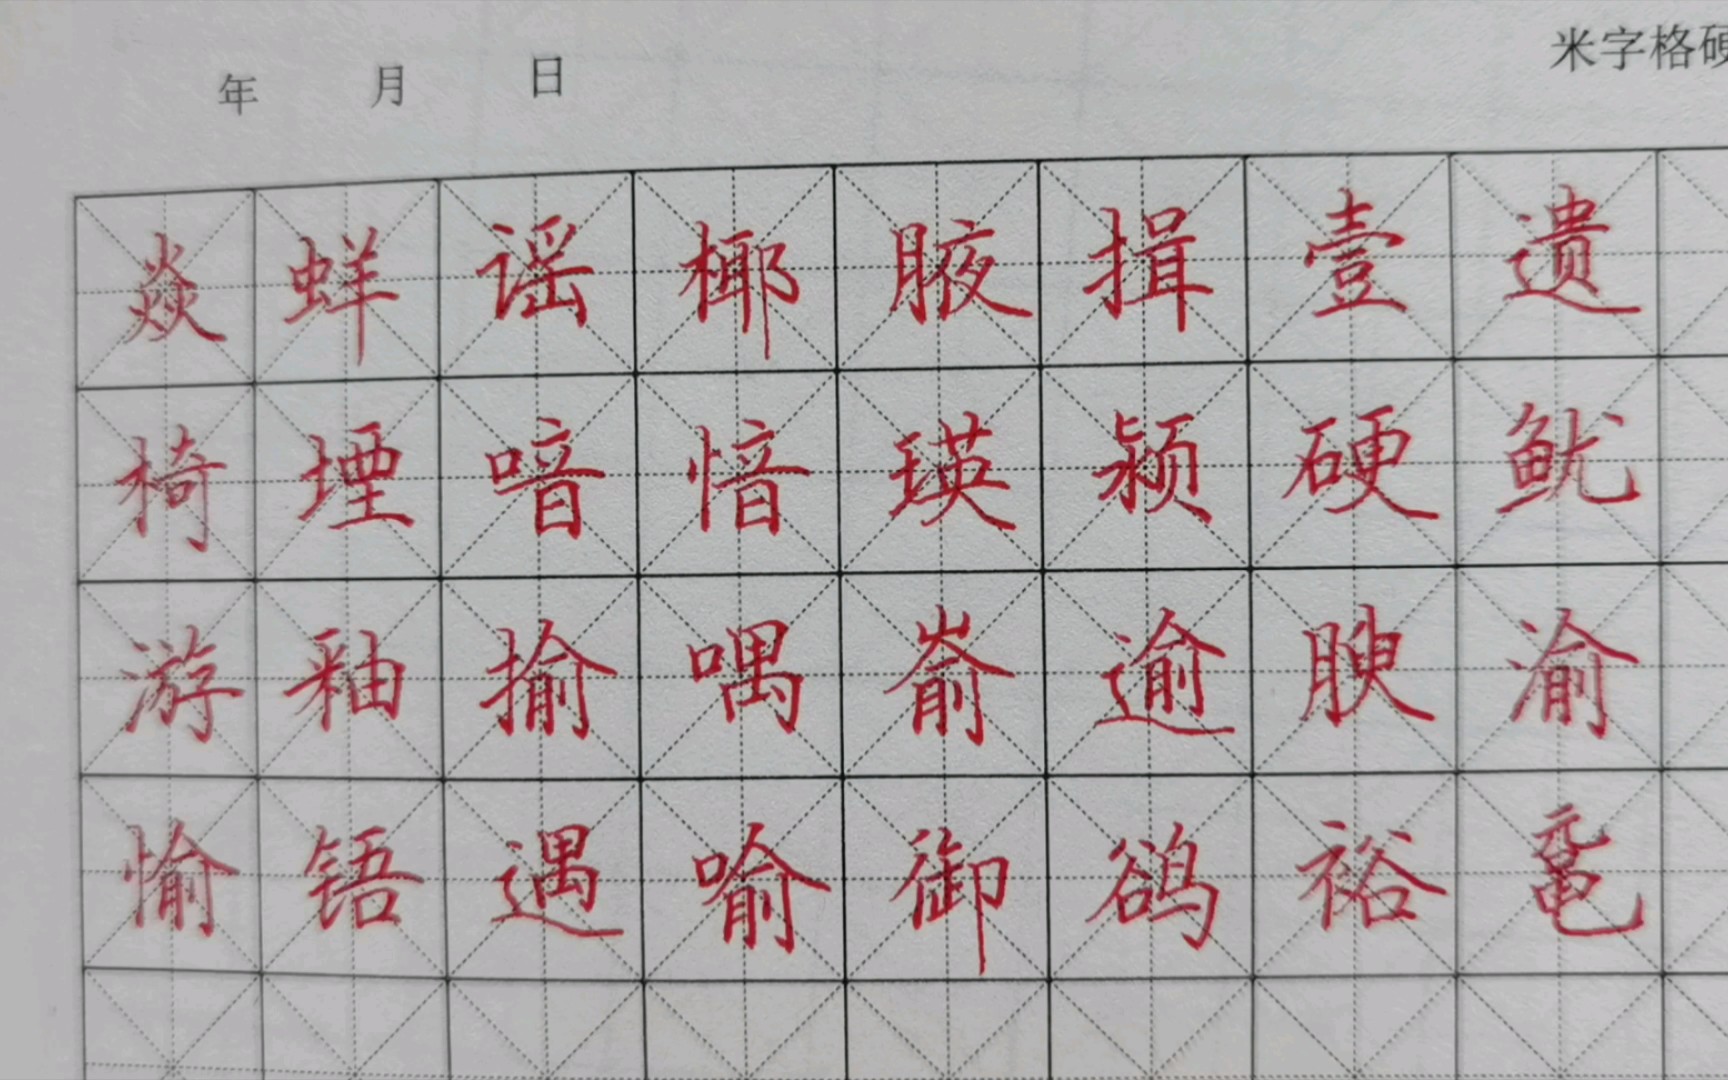 年 月 日 米字格硬
焱 蛘 谣 椰 腋 揖 壹 遗
椅 堙 喑 愔 瑛 颍 硬 鱿
游 釉 揄 喁 嵛 逾 腴 渝
愉 铻 遇 喻 御 鹆 裕 鼋